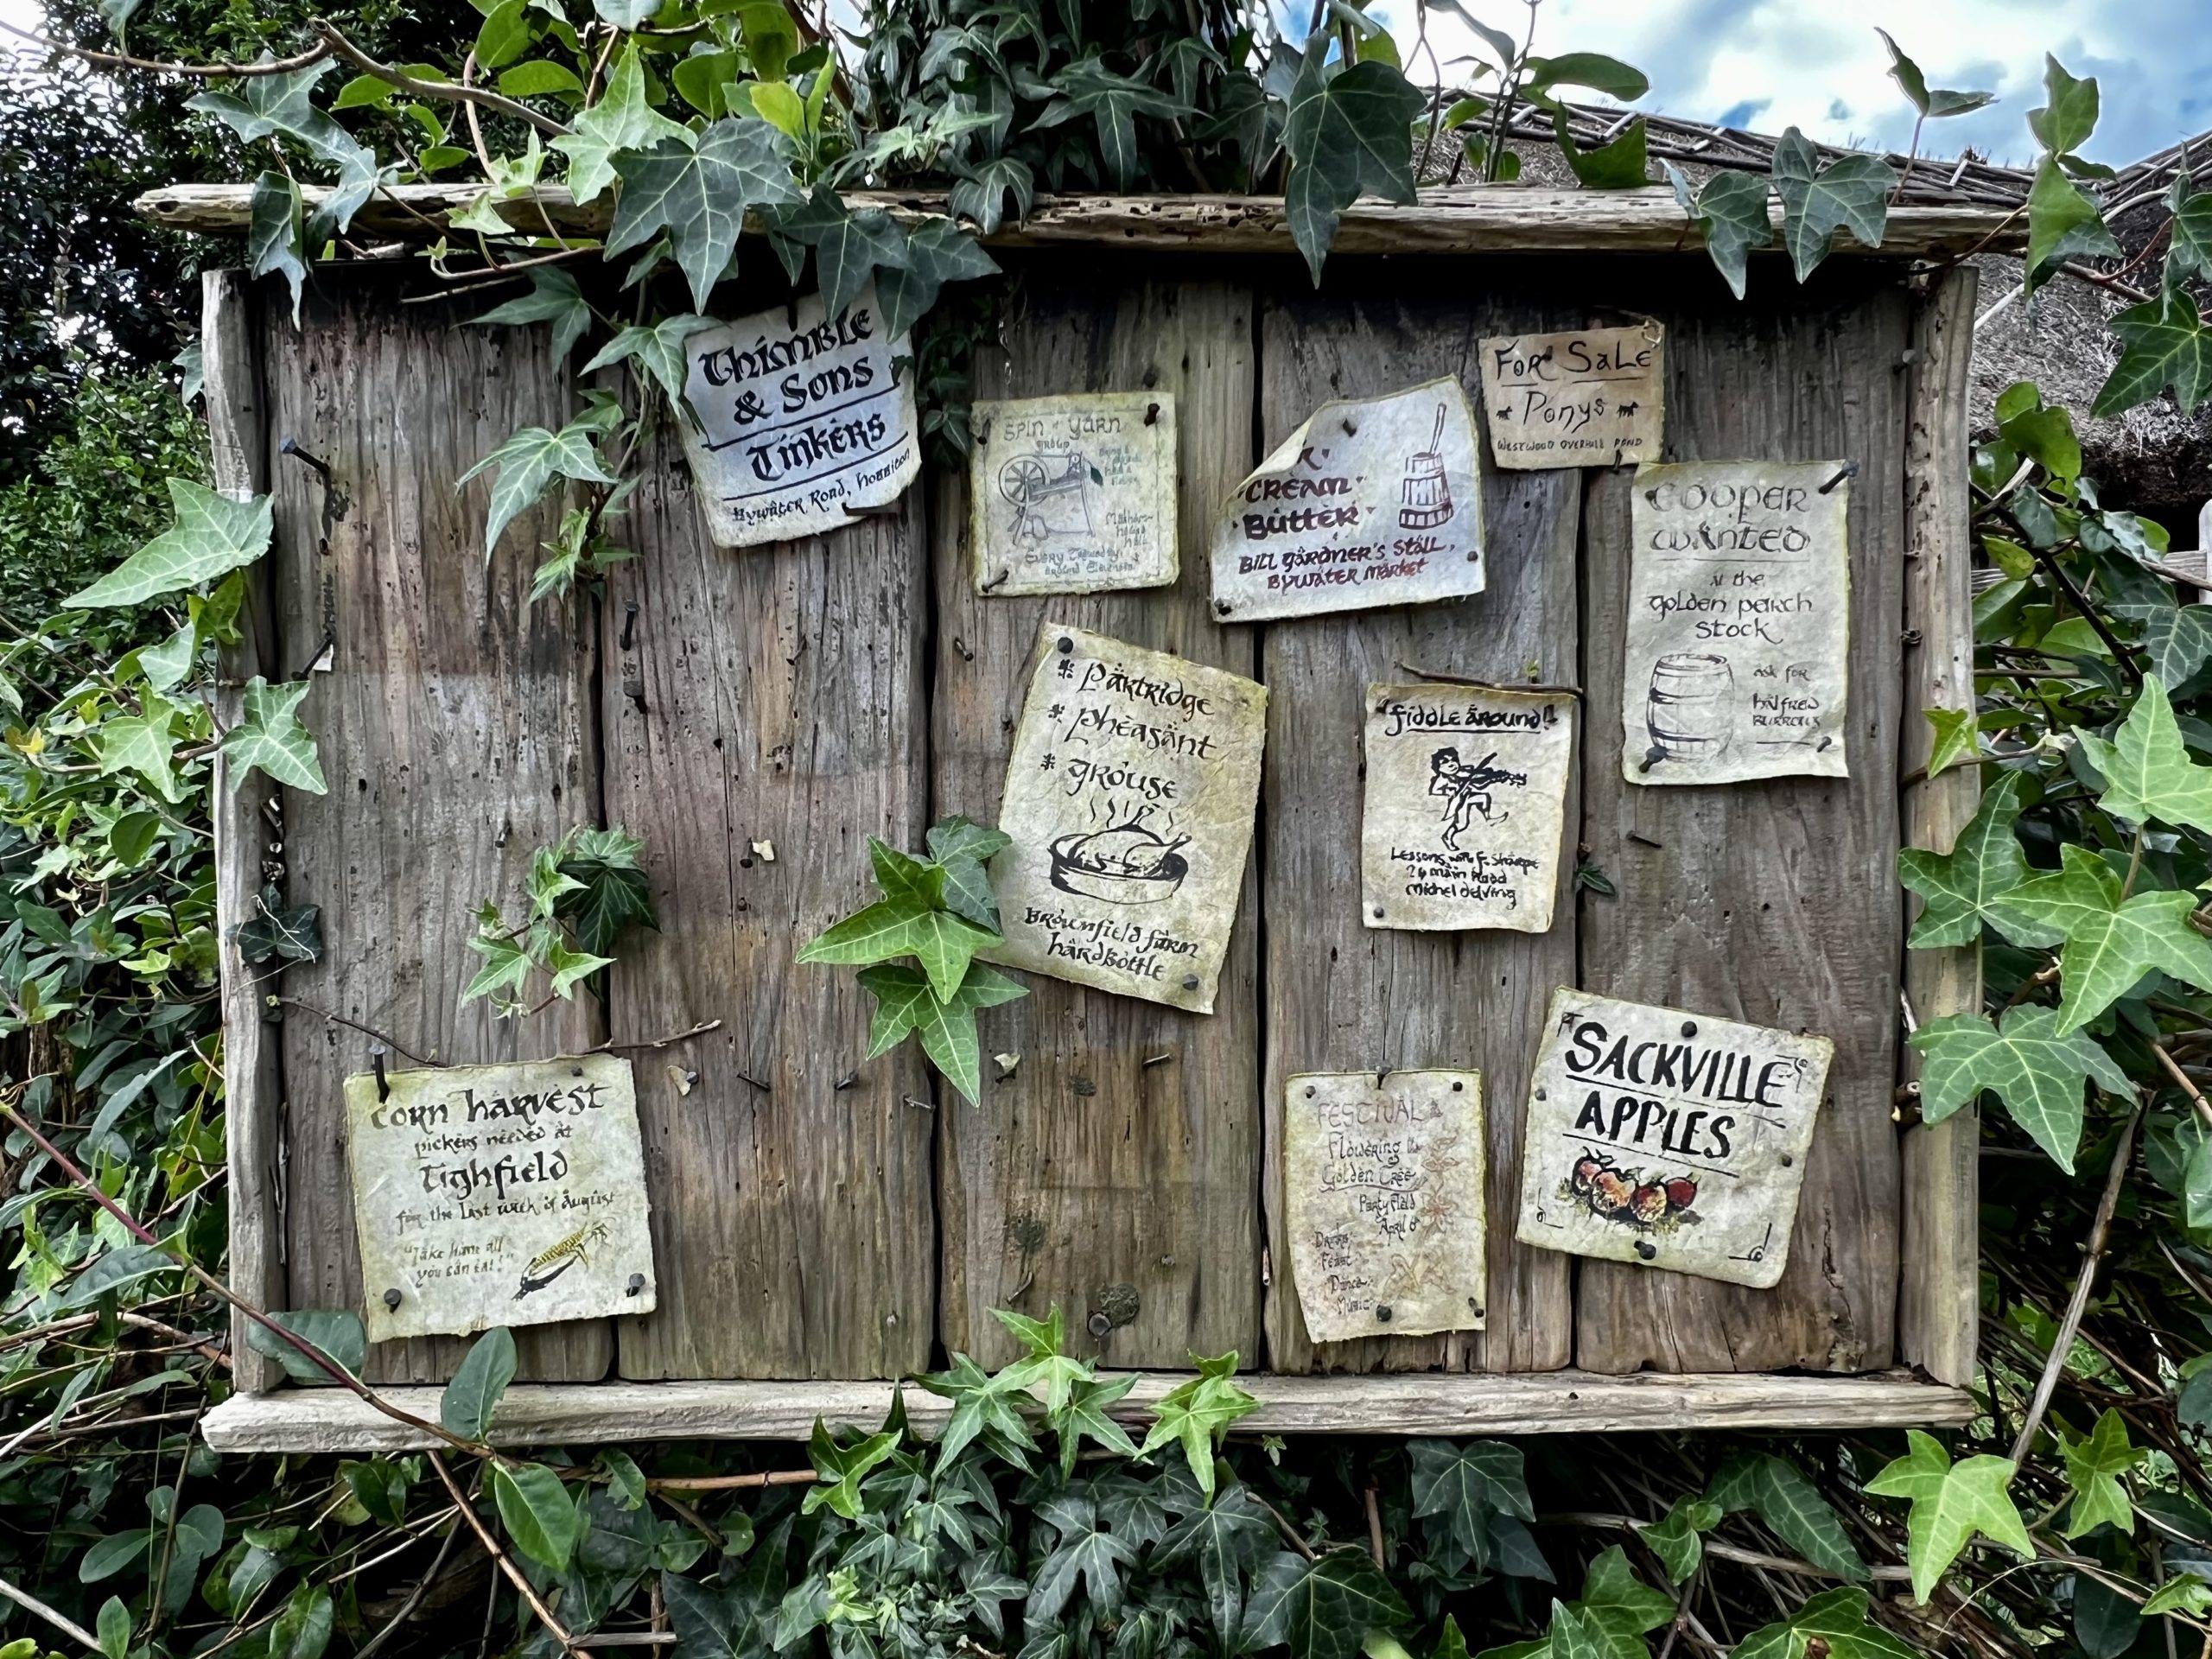 Thimble
& Sons
Tinkers
Bywater Road, Hobbiton
SPIN A YARN
GROUP
For Sale
Ponys
Westwood Overhill Road
CREAM
Butter
Bill Gardner's Stall,
Bywater Market
Cooper
Wanted
at the
golden perch
stock
ask for
halfred
Burrows
* Partridge
* Pheasant
* grouse
Brownfield farm
hardbottle
fiddle around!
Lessons with F.
26 Main Road
Michel delving
Corn harvest
pickers needed at
Tighfield
for the last week of August
"Take home all
you can eat!"
FESTIVAL
Flowering
Golden Tree
Party Field
April 6
Drinks
Feast
Dance
Music
SACKVILLE
APPLES